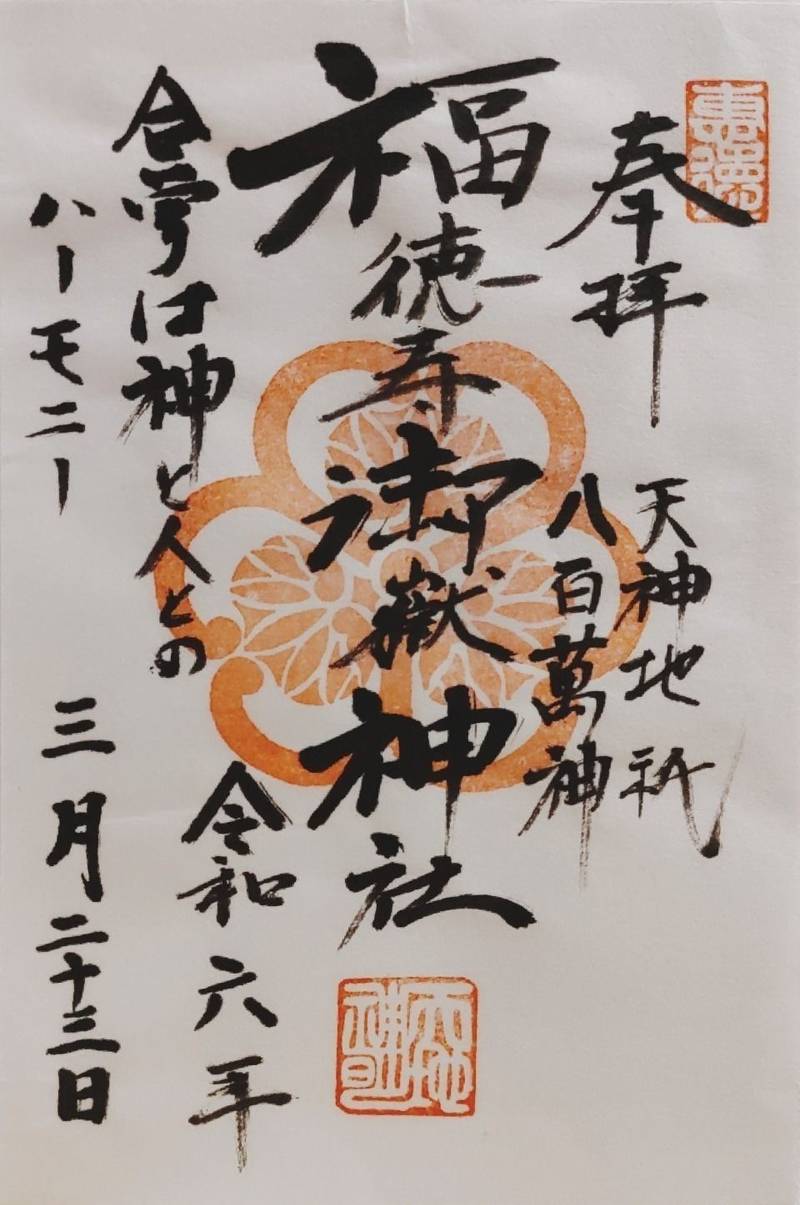 奉拝
天神地祇
八百萬神
福徳寿御嶽神社
合掌は神と人との
ハーモニー
令和六年
三月二十三日